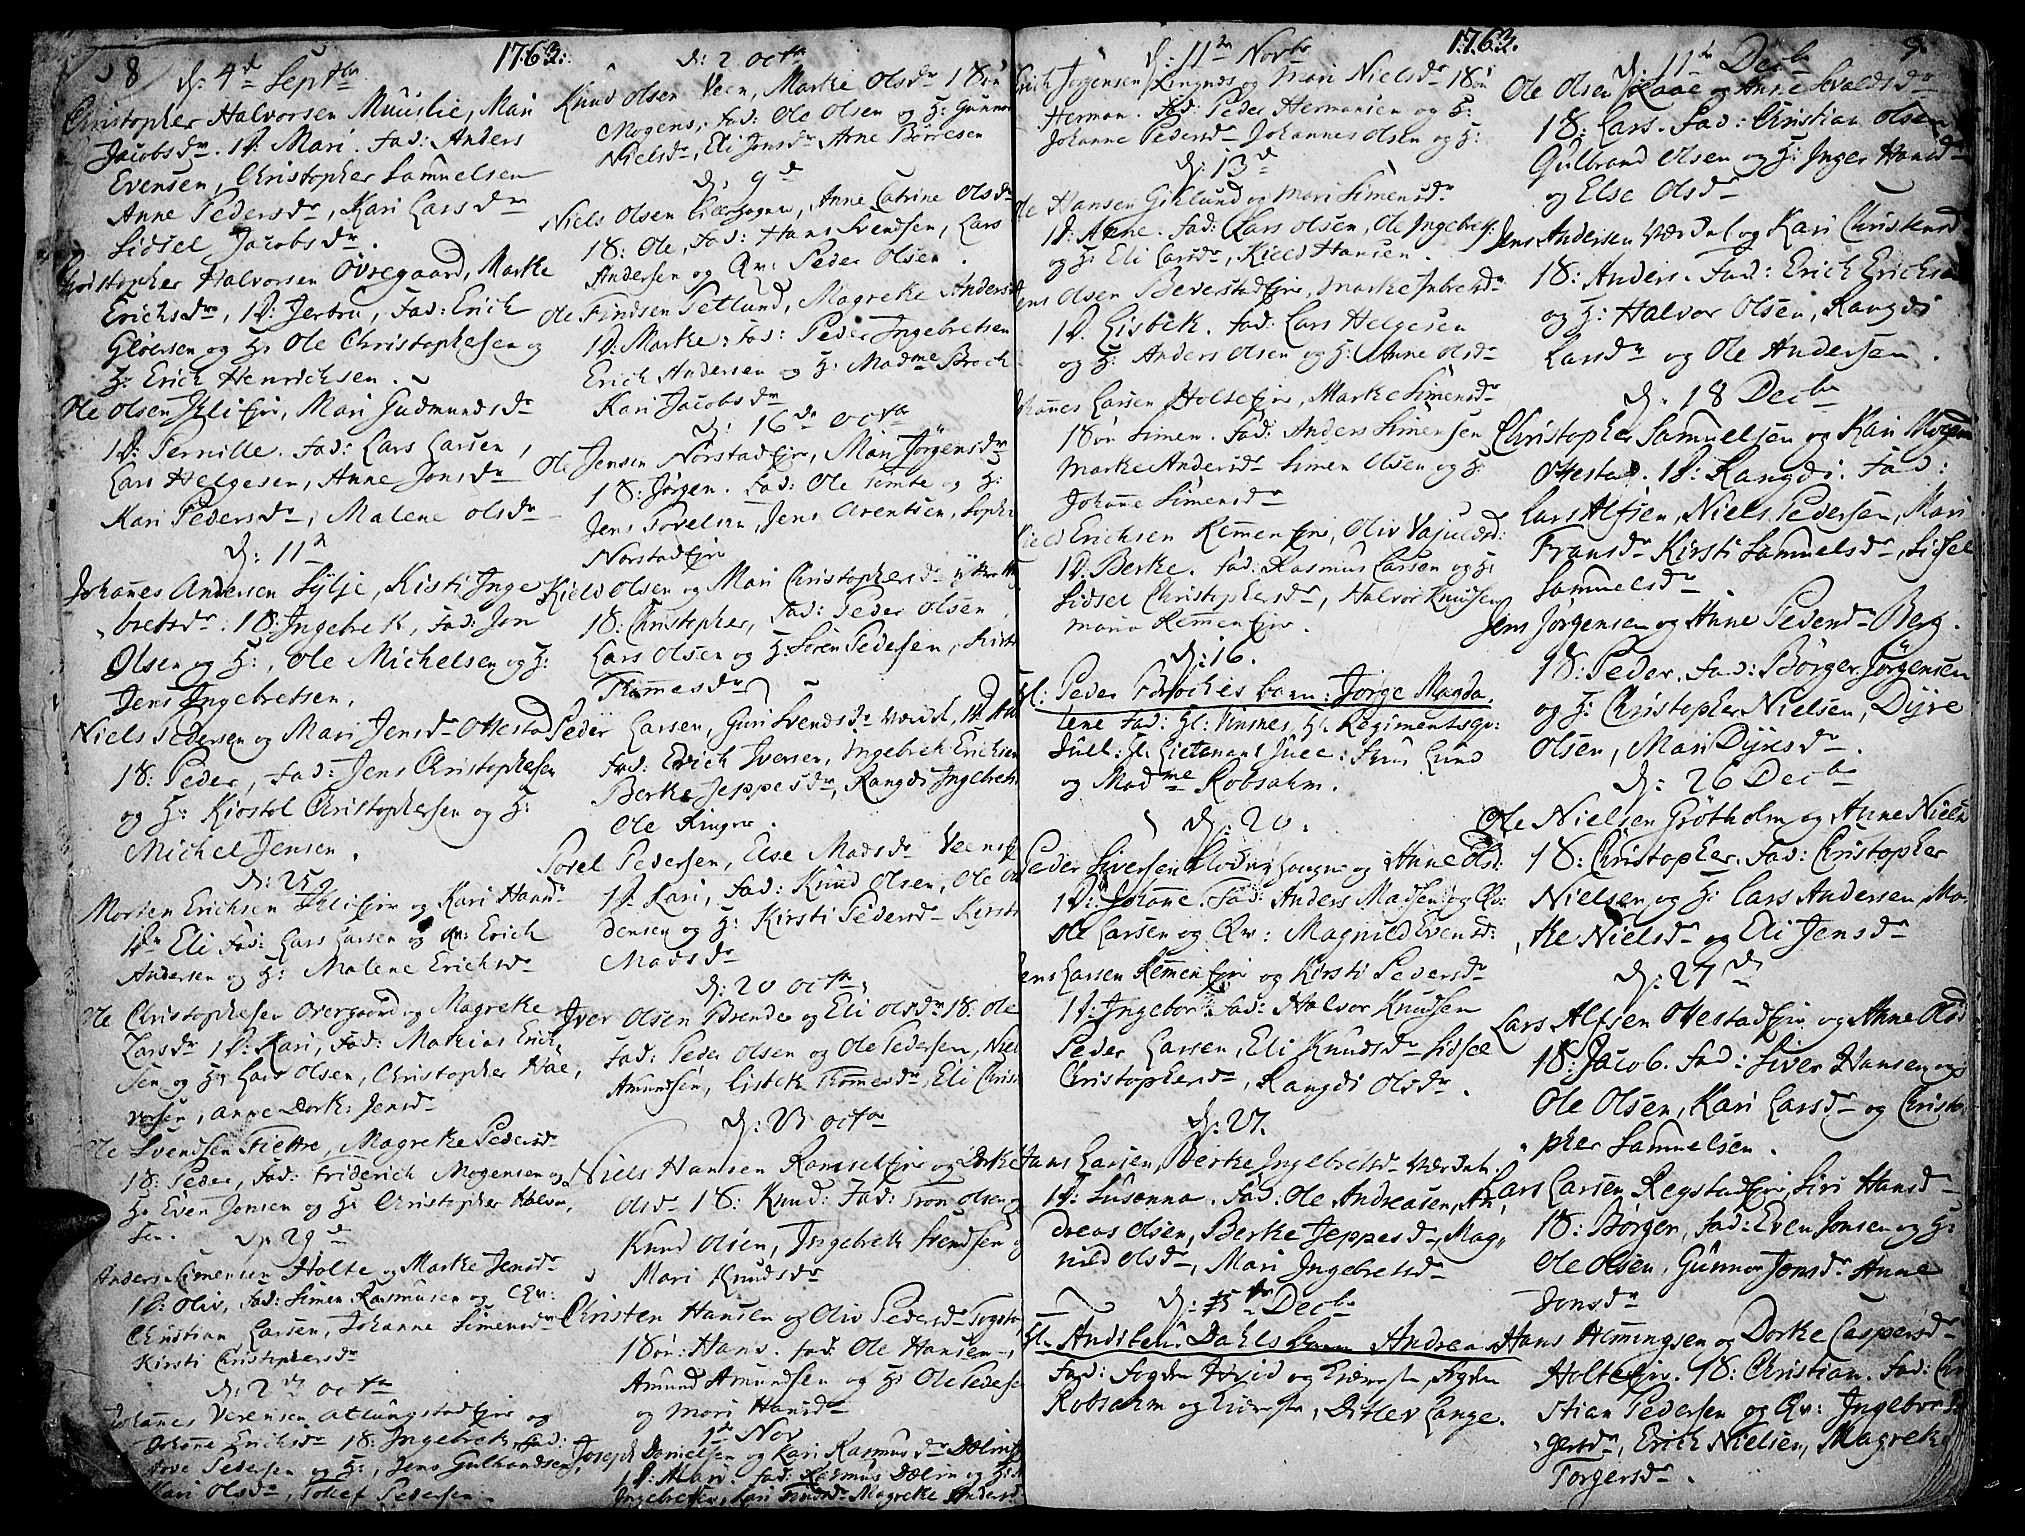 8
1763.
d: 4de Septbr
Christopher Halvorsen Muuslie, Mari
Jacobsdr. 1D: Mari. Fad: Anders
Evensen, Christopher Samuelsen
Anne Pedersdr, Kari Larsdr
Sidsel Jacobsdr.
Christopher Halvorsen Övregaard, Marte
Erichsdr, 1D: Jertru, Fad: Erich
Gloersen og H: Ole Christophersen og
H: Erich Henrichsen.
Ole Olsen, Mari Gudmundsdr
1D: Pernille. Fad: Lars Larsen,
Lars Helgesen, Anne Jonsdr
Kari Pedersdr, Malene Olsdr
d: 11
Johannes Andersen Sylje, Kisti Inge
bretsdr: 1B: Ingebret, Fad: Jon
Olsen og H:, Ole Michelsen og H:
Jens Ingebretsen.
Niels Pedersen og Mari Jensdr Ottestad
1B: Peder, Fad: Jens Christophersen
og H: Kiostol Christophersen og H:
Michel Jensen.
d: 25
Morten Erichsen og Kari Hansdr
1D Eli Fad: Lars Larsen og Qv: Erich
Andersen og H: Malene Erichsdr
Ole Christophersen Overgaard og Magrete
Larsdr 1D: Kari, Fad: Mathias Erich
sen og H: Lars Olsen, Christopher Hal,
vorsen, Anne Dort: Jensdr
Ole Svendsen Fiettre, Magrete Pedersdr
1B: Peder, Fad: Friderich Mogensen og
H: Even Jonsen og H: Christopher Halvor,
sen.
d: 29
Anders Simensen Holte og Marte Jensdr
1D: Oliv, Fad: Simen Rasmusen og Qv:
Christian Larsen, Johanne Simensdr
Kirsti Christophersdr
d: 2 Octbr
Johannes Verensen Atlungstadejer og
Johanne Erichsdr 1B: Ingebret, Fad:
Arve Pedersen og H:, Jens Gulbrandsen,
Mari Olsdr, Tollef Pedersen.
d: 2 Octbr
Knud Olsen Veen, Marte Olsdr 1Søn
Mogens, Fad: Ole Olsen og H: Gunnor
Nielsdr, Eli Jonsdr, Arne Börresen
d: 9de
Niels Olsen, Anne Catrine Olsdr
1B: Ole, Fad: Hans Svendsen, Lars
Andersen og Qv: Peder Olsen.
Ole Findsen Petlund, Magrete Anders
1D: Marte, Fad: Peder Ingebretsen
Erich Andersen og H: Madme Broch
Kari Jacobsdr
d: 16de Octbr
Ole Jensen Norstadejer, Mari Jørgensdr
1B: Jørgen. Fad: Ole Tomte og H:
Jens Povelsen, Jens Arentsen, Sophi
Norstadejer
Kield Olsen og Mari Christophersdr
1B: Christopher, Fad: Peder Olsen
Lars Olsen og H: Sören Pedersen, Kirsti
Thommesdr
Peder Larsen, Guri Svendsdr Værdal, 1D:
Fad: Erich Iversen, Ingebret Erichsen
Berte Jeppesdr, Rangdi Ingebret
Ole Ringer.
Povel Pedersen, Else Madsdr Veens
1D: Kari, Fad: Knud Olsen, Ole
densen og H: Kirsti Pedersdr Kirsti
Madsdr
d: 20 Octbr,
Iver Olsen Brenden og Eli Olsdr 1B: Ole
Fad: Peder Olsen og Ole Pedersen, Niels
Amundsen, Lisbet Thomesdr, Eli Christ
d: 23 Octbr
Niels Hansen Ramsetejer og Dorte
Olsdr 1B: Knud: Fad: Tron Olsen og
Knud Olsen, Ingebret Svendsen og
Mari Knudsdr
Christen Hansen og Oliv Pedersdr Fogsta
1Søn: Hans. Fad: Ole Hansen,
Amund Amundsen og H: Ole Pederse
og Mari Hansdr
1de Nov
Joseph Danielsen og Kari Rasmusdr Dælin
1D: Mari. Fad: Rasmus Dælin og H:
Ingebretsen, Kari Magrete Andersdr
1763.
9.
d: 11te Novbr
Erich Jørgensen og Mari Nielsdr 1Søn
Herman. Fad: Peder Hermansen og H:
Johanne Pedersdr, Johannes Olsen og H:
d: 13de
Ole Hansen Giklund og Mari Simensdr
1D: Anne. Fad: Lars Olsen, Ole Ingebr:
og H: Eli Larsdr, Kield Hansen.
Jens Olsen Beverstadejer, Marte
1D: Lisbet. Fad: Lars Helgesen
og H: Anders Olsen og H: Anne Olsdr
Johannes Larsen Holteejer, Marte Simensdr
1Søn Simen. Fad: Anders Simensen
Marte Andersdr Simen Olsen og H:
Johanne Simensdr
Kield Erichsen Remenejer, Oliv
1D. Berte. Fad: Rasmus Larsen og H:
Sidsel Christophersdr, Halvor Knudsen
Maria Remenejer.
d: 16.
Hl: Peder Broches barn: Jorge Magda,
lene Fad: Hl: Finsnes, Hl. Regimentsqv:
Juel: Hl: Lieutenant Juel: Frue Lund
og Madme Robsahm.
d: 20.
Peder Siversen og Anne Olsd:
1D: Johanne. Fad: Anders Madsen og Qv:
Ole Larsen og Qv: Magnild Evensd:
Jens Larsen Remenejer og Kirsti Pedersdr
1D: Ingebor: Fad: Halvor Knudsen
Peder Larsen, Eli Knudsdr Sidsel
Christophersdr, Rangdi Olsdr.
d: 27.
Hans Larsen, Berte Ingebretsdr Værdal.
1D: Susanna. Fad: Ole Andreasen, An,
dreas Olsen, Berte Jeppesdr, Mag,
nild Olsdr, Mari Ingebretsdr
d: 5te Decbr
Hl. Andsteu. Dahls barn Andrea
Fad: Fogden og Kiereste, Fogden
Robsahm og Kiereste, Ditlev Lange.
d: 11te Decbr
Ole Olsen og Anne
1B: Lars. Fad: Christian Olsen
Gulbrand Olsen og H: Inger Hansdr
og Else Olsdr
Jens Andersen Værdal og Kari Christensd
1B: Anders. Fad: Erich Erichsen
og H: Halvor Olsen, Rangdi
Larsdr og Ole Andersen.
d: 18 Decbr
Christopher Samuelsen og Kari Mogens
Ottestad. 1D: Rangdi. Fad:
Lars Alfsen, Niels Pedersen, Mari
Fransdr Kirsti Samuelsdr, Sidsel
Samuelsdr
Jens Jørgensen og Anne Pedersdr Berg.
1B: Peder. Fad: Börger Jörgensen
og H: Christopher Nielsen, Dyre
Olsen, Mari Dyresdr.
d: 26 Decbr
Ole Nielsen Gröthølm og Anne Niels
1B: Christopher. Fad: Christopher
Nielsen og H: Lars Andersen, Ma,
rte Nielsdr og Eli Jensdr
d: 27de
Lars Alfsen Ottestadejer og Anne Olsd
1B: Jacob. Fad: Siver Hansen og
Ole Olsen, Kari Larsdr og Christo,
pher Samuelsen.
Lars Larsen Regstadejer, Siri Hansdr
1B: Börger, Fad: Even Jonsen og H:
Ole Olsen, Gunnor Jonsdr Anne
Jonsdr
Hans Hemingsen og Dorte Caspersdr
Holteejer. 1B: Christian. Fad: Chri
stian Pedersen og Qv: Ingebor
gersdr, Erich Nielsen, Magrete
Torgersdr.